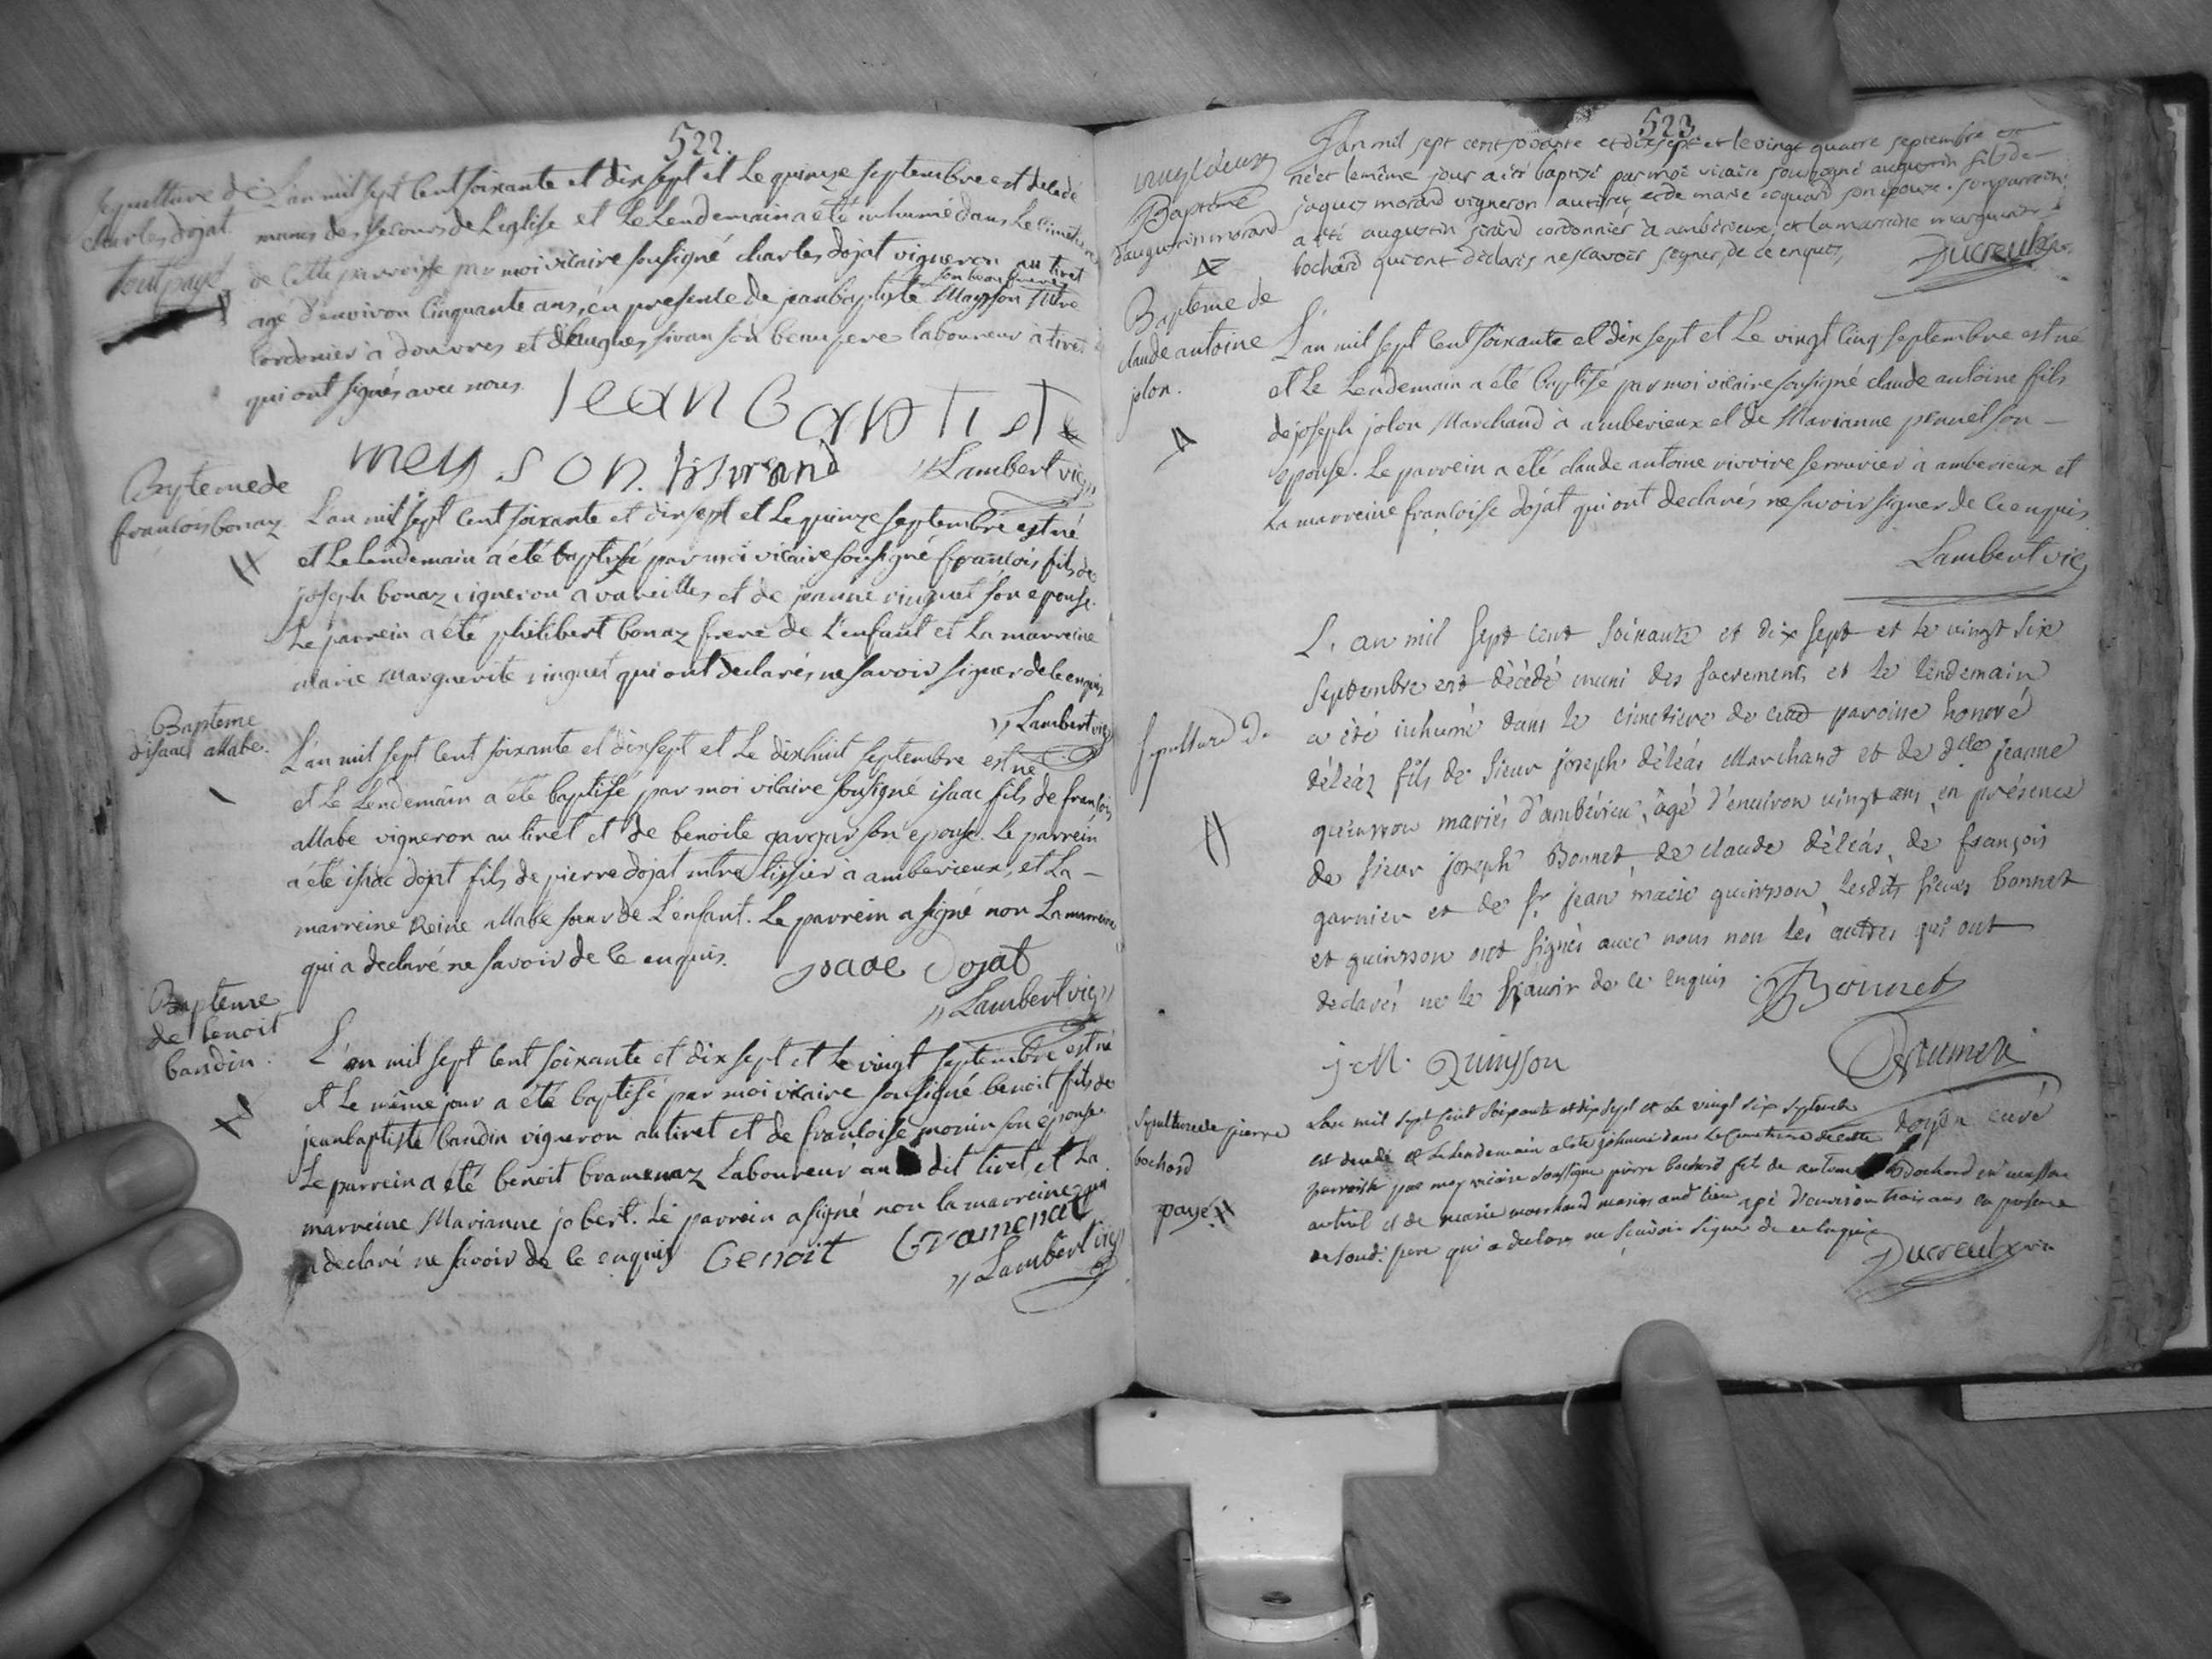 522.
sepulture de
charles dojat
tout payé
L'an mil sept cent soixante et dix sept et Le quinze septembre est decedé
munis des secours de L'eglise et Le Lendemain a été inhumé dans Le Cimetiere
de cette parroisse par moi vicaire sousigné charles dojat vigneron au tiret
son beau frere
agé d'environ Cinquante ans, en presence de jeanbaptiste Maysson Mtre
Cordonier à douvres et d'hugues sivan son beau pere laboureur à tiret
qui ont signés avec nous.
Jean Baptiste
meyson
Lambert vic
Bapteme de
francois bonaz
L'an mil sept cent soixante et dix sept et Le quinze septembre est né
et Le Lendemain a été baptisé par moi vicaire sousigné francois fils de
joseph bonaz vigneron a vareilles et de jeanne ringuet son epouse.
Le parrein a été philibert bonaz frere de L'enfant et La marreine
marie Marguerite ringuet qui ont declarés ne savoir signer de ce enquis
Lambert vic
Bapteme
d'isaac allabe.
L'an mil sept cent soixante et dix sept et Le dix huit septembre est né
et Le Lendemain a été baptisé par moi vicaire sousigné isaac fils de francois
allabe vigneron au tiret et de benoite son epouse. Le parrein
a été isaac dojat fils de pierre dojat mtre tissier à amberieux, et La
marreine Reine allabe sœur de L'enfant. Le parrein a signé non La marreine
qui a declaré ne savoir de ce enquis.
isaac Dojat
Lambert vic
Bapteme
de benoit
baudin.
L'an mil sept cent soixante et dix sept et Le vingt septembre est né
et Le même jour a été baptisé par moi vicaire sousigné benoit fils de
jeanbaptiste baudin vigneron au tiret et de francoise monin son épouse.
Le parrein a été benoit bramenaz Laboureur au dit tiret et La
marreine Marianne jobert. Le parrein a signé non la marreine qui
a declaré ne savoir de ce enquis
benoit bramenaz
Lambert vic
523
Baptême
d'augustin morand
L'an mil sept cent soixante et dix sept et le vingt quatre septembre est
né et le même jour a été baptizé par moi vicaire soussigné augustin fils de
jaques morand vigneron au tiret et de marie coquard son épouze. son parrein
a été augustin sirand cordonnier à ambérieux, et la marraine marguerite
bochard qui ont déclarés ne scavoir signer, de ce enquis,
Ducreux
Bapteme de
claude antoine
jolon.
L'an mil sept cent soixante et dix sept et Le vingt cinq septembre est né
et Le Lendemain a été baptisé par moi vicaire sousigné claude antoine fils
de joseph jolon Marchand à amberieux et de Marianne son
epouse. Le parrein a été claude antoine serrurier à amberieux et
La marreine francoise dojat qui ont declarés ne savoir signer de ce enquis
Lambert vic
sepulture de
L'an mil sept cent soixante et dix sept et le vingt six
septembre est décédé muni des sacrements et le lendemain
a été inhumé dans le cimetiere de cette paroisse honoré
déléaz fils de sieur joseph déléaz Marchand et de dlle jeanne
quinsson mariés d'ambérieu, âgé d'environ vingt ans, en présence
de sieur joseph Bonnet de claude déléas, de françois
garnier et de sr jean marie quinsson, lesdits sieurs bonnet
et quinsson ont signés avec nous non les autres qui ont
déclarés ne le scavoir de ce enquis.
Bonnet
j. M. Quinsson
doyen curé
Sepulture de pierre
bochard
payé
L'an mil sept cent soixante et dix sept et le vingt six septembre
est decedé et le lendemain a eté inhumé dans le Cimetiere de cette
parroisse par moy vicaire soussigné pierre bochard fils de antoine Bochard
au tiret et de marie marchand mariés aud lieu agé d'environ trois ans en presence
de soud. pere qui a declare ne scavoir signer de ce enquis
Ducreux vic